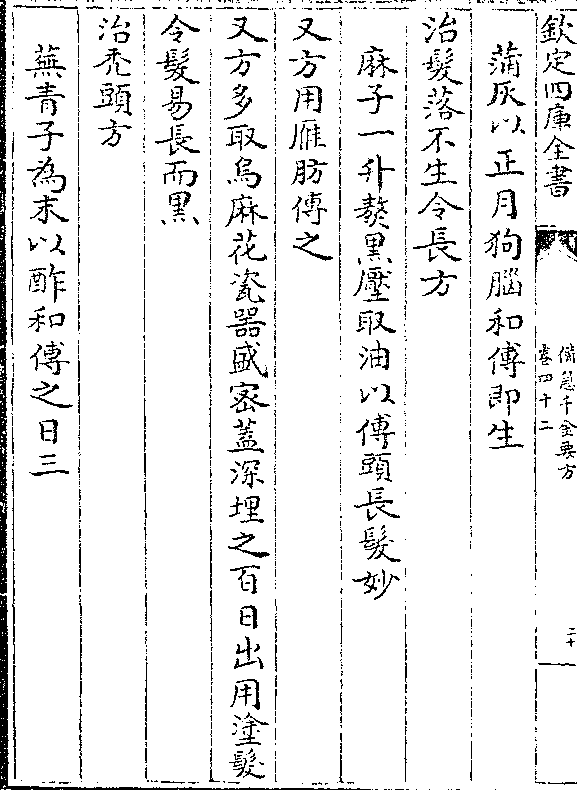 欽定四庫全書
備急千金要方
卷四十二
二十
蒲灰以正月狗腦和傅即生
治髮落不生令長方
麻子一升熬黒壓取油以傅頭長髮妙
又方用雁肪傅之
又方多取烏麻花瓷器盛宻蓋深埋之百日出用塗髮
令髮易長而黒
治禿頭方
蕪青子為末以酢和傅之日三